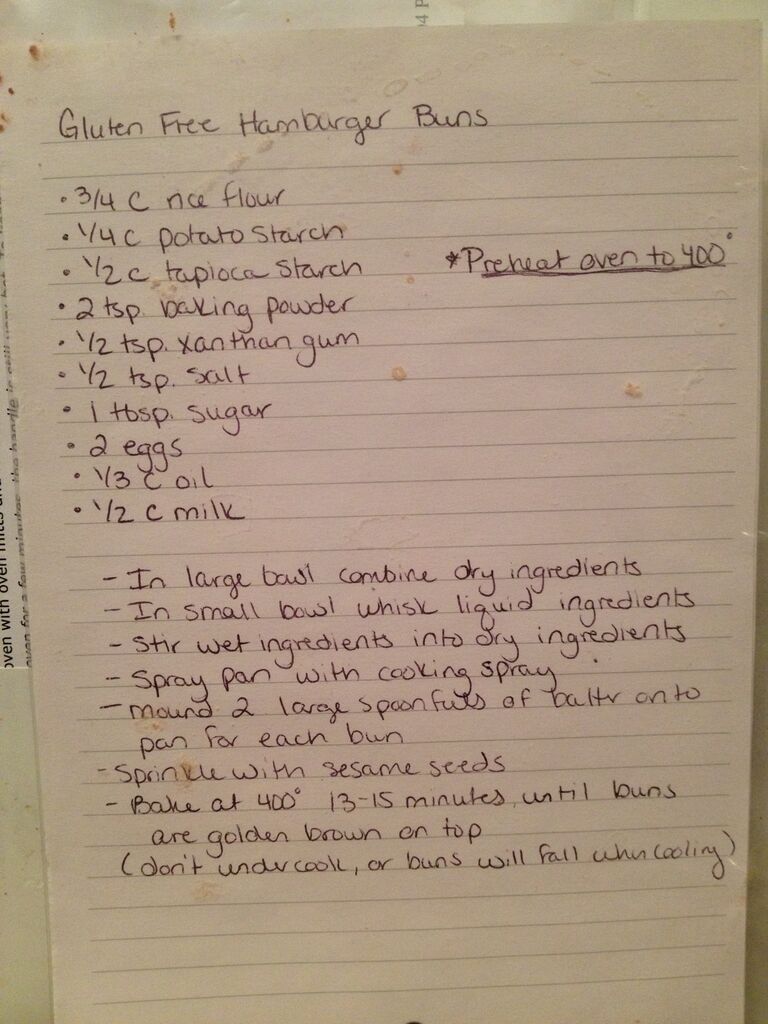 Gluten Free Hamburger Buns
• 3/4 C rice flour
• 1/4 C potato starch
• 1/2 c tapioca starch
*Preheat oven to 400°
• 2 tsp. baking powder
• 1/2 tsp. xanthan gum
• 1/2 tsp. salt
• 1 tbsp. sugar
• 2 eggs
• 1/3 C oil
• 1/2 C milk
- In large bowl combine dry ingredients
- In small bowl whisk liquid ingredients
- Stir wet ingredients into dry ingredients
- Spray pan with cooking spray
- mound 2 large spoonfuls of batter onto
pan for each bun
- Sprinkle with sesame seeds
- Bake at 400° 13-15 minutes, until buns
are golden brown on top
(don't undercook, or buns will fall when cooling)
oven with oven mitts and
oven for a few minutes the handle is still very hot
4 P